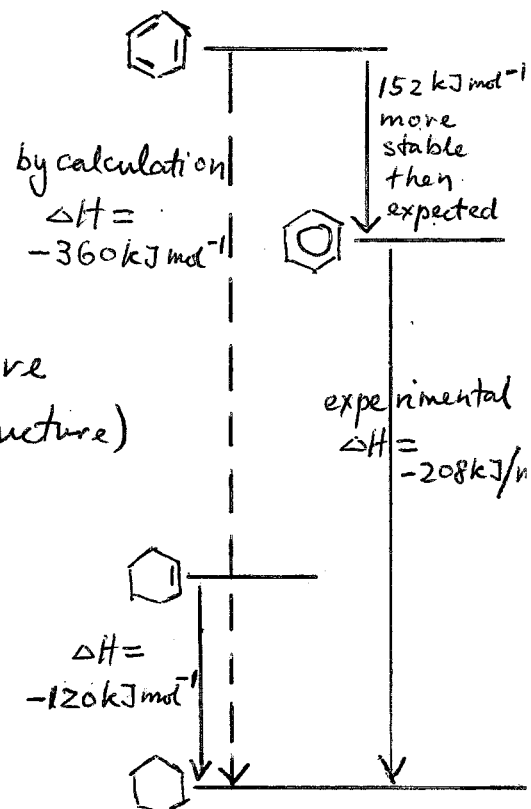 152 kJ mol⁻¹
more
stable
then
expected
by calculation
ΔH =
-360 kJ mol⁻¹
ve
ucture)
experimental
ΔH =
-208 kJ/m
ΔH =
-120 kJ mol⁻¹